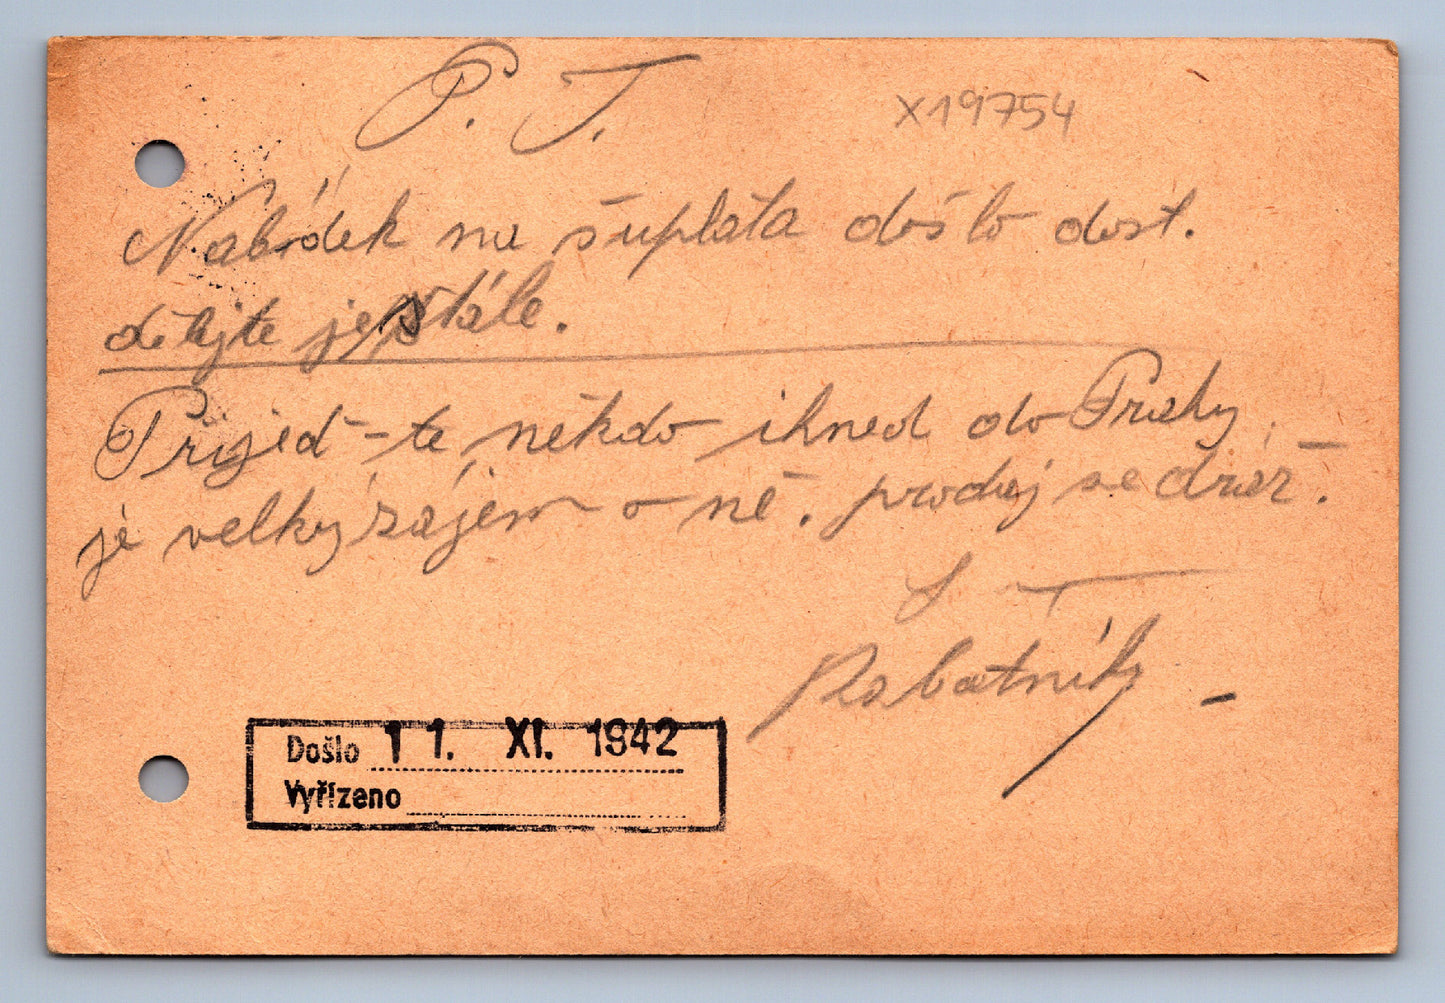 P. T.
X19754
Nabídek na šuplata došlo dost.
dělejte je stále.
Přijeď-te někdo ihned do Prahy
je velký zájem o ně. prodej se draž.
Došlo 11. XI. 1942
Vyřízeno